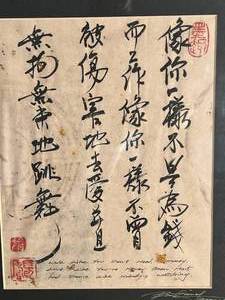 像你一樣不是為錢
而作像你一樣不曾
被傷害地去愛並且
無拘無束地跳舞
work like you don't need money,
love like you've never been hurt
and dance like nobody's watching